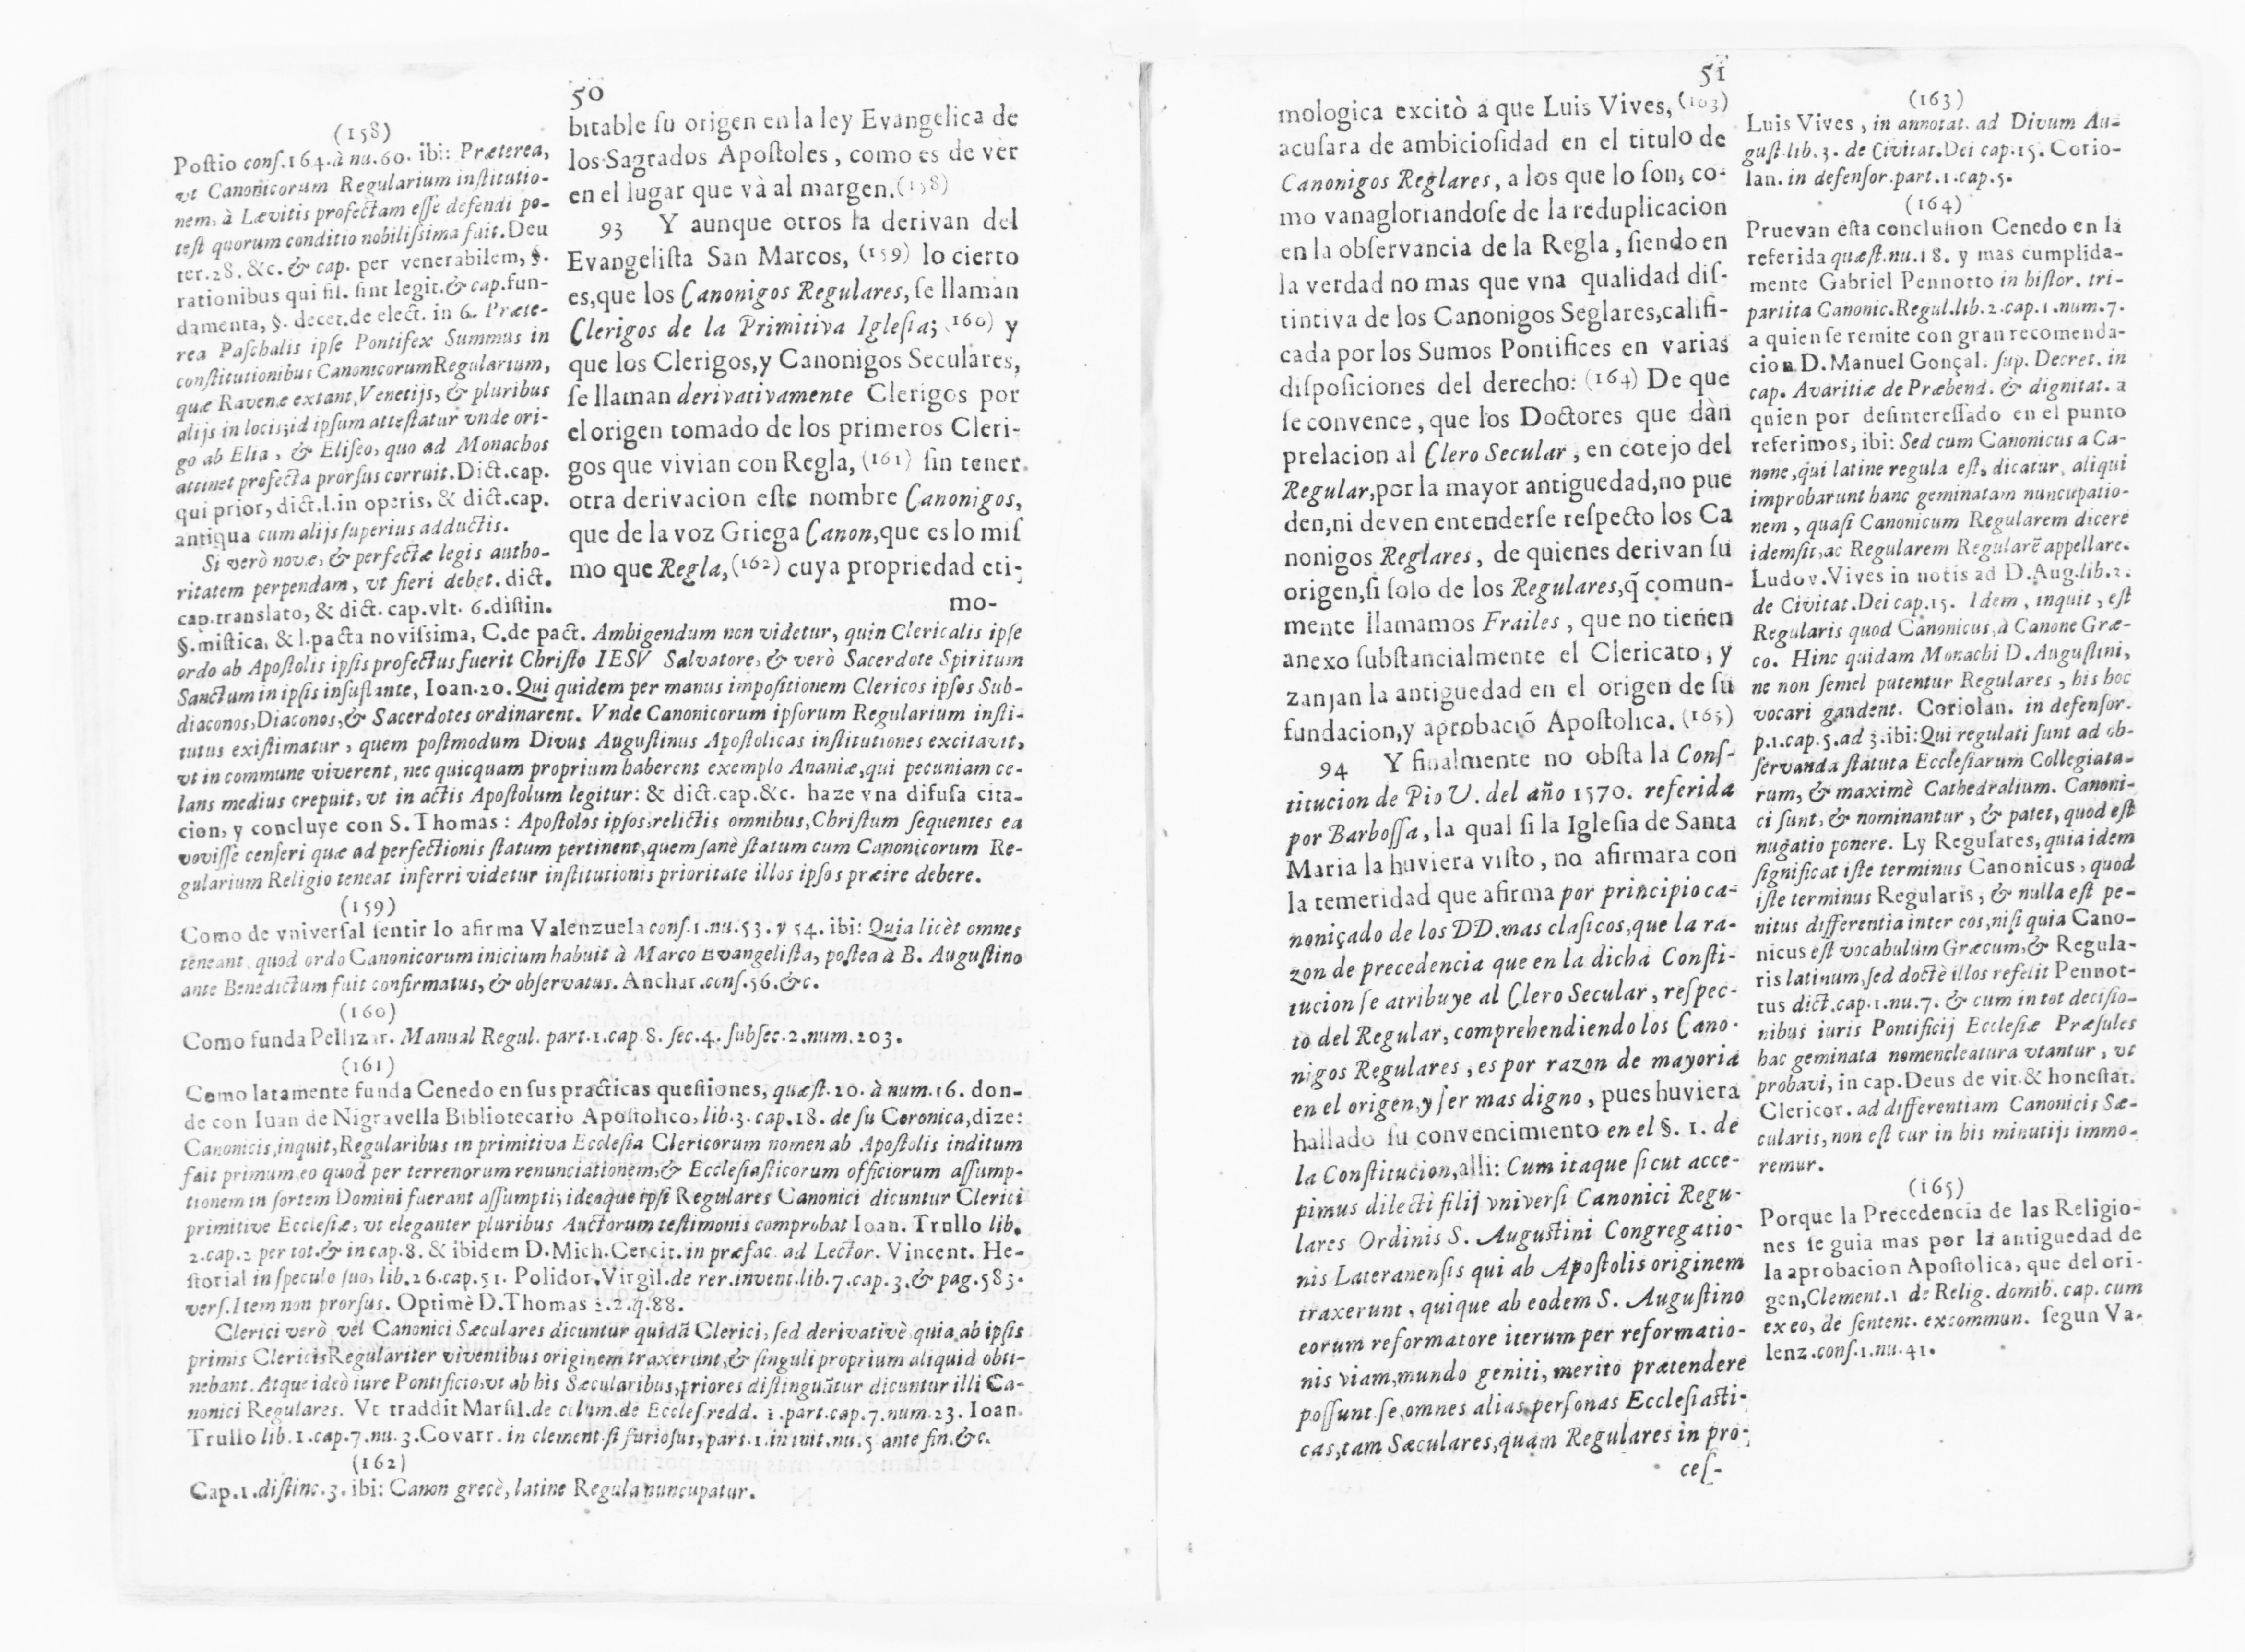 50
bitable ſu origen en la ley Evangelica de
los Sagrados Apoſtoles, como es de ver
en el lugar que và al margen. (158)
93 Y aunque otros la derivan del
Evangeliſta San Marcos, (159) lo cierto
es, que los Canonigos Regulares, ſe llaman
Clerigos de la Primitiva Igleſia; (160) y
que los Clerigos, y Canonigos Seculares,
ſe llaman derivativamente Clerigos por
el origen tomado de los primeros Cleri-
gos que vivian con Regla, (161) ſin tener
otra derivacion eſte nombre Canonigos,
que de la voz Griega Canon, que es lo miſ
mo que Regla, (162) cuya propriedad eti-
mo-
(158)
Poſtio conſ.164.à nu.60. ibi: Præterea,
vt Canonicorum Regularium inſtitutio-
nem, à Lævitis profectam eſſe defendi po-
teſt quorum conditio nobiliſsima fuit. Deu
ter.28. &c. & cap. per venerabilem, §.
rationibus qui fil. ſint legit. & cap. fun-
damenta, §. decet. de elect. in 6. Præte-
rea Paſchalis ipſe Pontifex Summus in
conſtitutionibus Canonicorum Regularium,
quæ Ravenæ extant, Venetijs, & pluribus
alijs in locis; id ipſum atteſtatur vnde ori-
go ab Elia, & Eliſeo, quo ad Monachos
attinet profecta prorſus corruit. Dict. cap.
qui prior, dict. l. in operis, & dict. cap.
antiqua cum alijs ſuperius adductis.
Si verò novæ, & perfectæ legis autho-
ritatem perpendam, vt fieri debet. dict.
cap. translato, & dict. cap. vlt. 6. diſtin.
§. miſtica, & l. pacta noviſsima, C. de pact. Ambigendum non videtur, quin Clericalis ipſe
ordo ab Apoſtolis ipſis profectus fuerit Chriſto IESV Salvatore, & verò Sacerdote Spiritum
Sanctum in ipſis inſuflante, Ioan.20. Qui quidem per manus impoſitionem Clericos ipſos Sub-
diaconos, Diaconos, & Sacerdotes ordinarent. Vnde Canonicorum ipſorum Regularium inſti-
tutus exiſtimatur, quem poſtmodum Divus Auguſtinus Apoſtolicas inſtitutiones excitavit,
vt in commune viverent, nec quicquam proprium haberent exemplo Ananiæ, qui pecuniam ce-
lans medius crepuit, vt in actis Apoſtolum legitur: & dict. cap. &c. haze vna difuſa cita-
cion, y concluye con S. Thomas: Apoſtolos ipſos, relictis omnibus, Chriſtum ſequentes ea
voviſſe cenſeri quæ ad perfectionis ſtatum pertinent, quem ſanè ſtatum cum Canonicorum Re-
gularium Religio teneat inferri videtur inſtitutionis prioritate illos ipſos præire debere.
(159)
Como de vniverſal ſentir lo afirma Valenzuela conſ.1.nu.53. y 54. ibi: Quia licèt omnes
teneant quod ordo Canonicorum inicium habuit à Marco Evangeliſta, poſtea à B. Auguſtino
ante Benedictum fuit confirmatus, & obſervatus. Anchar. conſ.56. &c.
(160)
Como funda Pellizar. Manual Regul. part.1.cap 8. ſec.4. ſubſec.2.num.203.
(161)
Como latamente funda Cenedo en ſus practicas queſtiones, quæſt.20. à num.16. don-
de con Iuan de Nigravella Bibliotecario Apoſtolico, lib.3. cap.18. de ſu Coronica, dize:
Canonicis, inquit, Regularibus in primitiva Eccleſia Clericorum nomen ab Apoſtolis inditum
fait primum, eo quod per terrenorum renunciationem, & Eccleſiaſticorum officiorum aſſump-
tionem in ſortem Domini fuerant aſſumpti; ideoque ipſi Regulares Canonici dicuntur Clerici
primitive Eccleſiæ, vt eleganter pluribus Auctorum teſtimonis comprobat Ioan. Trullo lib.
2.cap.2 per tot. & in cap.8. & ibidem D. Mich. Cercit. in præfac. ad Lector. Vincent. He-
ſtorial in ſpeculo ſuo, lib.26.cap.51. Polidor. Virgil. de rer. invent. lib.7.cap.3. & pag.583.
verſ. Item non prorſus. Optimè D. Thomas 2.2.q.88.
Clerici verò vel Canonici Sæculares dicuntur quidã Clerici, ſed derivativè quia ab ipſis
primis Clericis Regulariter viventibus originem traxerunt, & ſinguli proprium aliquid obti-
nebant. Atque ideò iure Pontificio, vt ab his Sæcularibus, priores diſtinguãtur dicuntur illi Ca-
nonici Regulares. Vt traddit Marſil. de colum. de Eccleſ. redd. 1. part. cap.7. num.23. Ioan.
Trullo lib.1.cap.7.nu.3. Covarr. in clement. ſi furioſus, part.1. in init. nu.5 ante fin. &c.
(162)
Cap.1. diſtinc.3. ibi: Canon grecè, latine Regula nuncupatur.
51
mologica excitò a que Luis Vives, (163)
acuſara de ambicioſidad en el titulo de
Canonigos Reglares, a los que lo ſon, co-
mo vanagloriandoſe de la reduplicacion
en la obſervancia de la Regla, ſiendo en
la verdad no mas que vna qualidad diſ-
tintiva de los Canonigos Seglares, califi-
cada por los Sumos Pontifices en varias
diſpoſiciones del derecho: (164) De que
ſe convence, que los Doctores que dàn
prelacion al Clero Secular, en cotejo del
Regular, por la mayor antiguedad, no pue
den, ni deven entenderſe reſpecto los Ca
nonigos Reglares, de quienes derivan ſu
origen, ſi ſolo de los Regulares, q̃ comun-
mente llamamos Frailes, que no tienen
anexo ſubſtancialmente el Clericato, y
zanjan la antiguedad en el origen de ſu
fundacion, y aprobaciõ Apoſtolica. (165)
94 Y finalmente no obſta la Conſ-
titucion de Pio V. del año 1570. referida
por Barboſſa, la qual ſi la Igleſia de Santa
Maria la huviera viſto, no afirmara con
la temeridad que afirma por principio ca-
noniçado de los DD. mas claſicos, que la ra-
zon de precedencia que en la dicha Conſti-
tucion ſe atribuye al Clero Secular, reſpec-
to del Regular, comprehendiendo los Cano-
nigos Regulares, es por razon de mayoria
en el origen, y ſer mas digno, pues huviera
hallado ſu convencimiento en el §. 1. de
la Conſtitucion, alli: Cum itaque ſicut acce-
pimus dilecti filij vniverſi Canonici Regu-
lares Ordinis S. Auguſtini Congregatio-
nis Lateranenſis qui ab Apoſtolis originem
traxerunt, quique ab eodem S. Auguſtino
eorum reformatore iterum per reformatio-
nis viam, mundo geniti, merito prætendere
poſſunt ſe, omnes alias perſonas Eccleſiaſti-
cas, tam Sæculares, quam Regulares in pro-
ceſ-
(163)
Luis Vives, in annotat. ad Divum Au-
guſt. lib.3. de Civitat. Dei cap.15. Corio-
lan. in defenſor. part.1.cap.5.
(164)
Pruevan eſta concluſion Cenedo en la
referida quæſt. nu.18. y mas cumplida-
mente Gabriel Pennotto in hiſtor. tri-
partita Canonic. Regul. lib.2.cap.1.num.7.
a quien ſe remite con gran recomenda-
cion D. Manuel Gonçal. ſup. Decret. in
cap. Avaritiæ de Præbend. & dignitat. a
quien por deſintereſſado en el punto
referimos, ibi: Sed cum Canonicus a Ca-
none, qui latine regula eſt, dicatur, aliqui
improbarunt hanc geminatam nuncupatio-
nem, quaſi Canonicum Regularem dicere
idem ſit, ac Regularem Regularẽ appellare.
Ludov. Vives in notis ad D. Aug. lib.2.
de Civitat. Dei cap.15. Idem, inquit, eſt
Regularis quod Canonicus, à Canone Græ-
co. Hinc quidam Monachi D. Auguſtini,
ne non ſemel putentur Regulares, his hoc
vocari gaudent. Coriolan. in defenſor.
p.1.cap.5.ad 3. ibi: Qui regulati ſunt ad ob-
ſervanda ſtatuta Eccleſiarum Collegiata-
rum, & maximè Cathedralium. Canoni-
ci ſunt, & nominantur, & patet, quod eſt
nugatio ponere. Ly Regulares, quia idem
ſignificat iſte terminus Canonicus, quod
iſte terminus Regularis, & nulla eſt pe-
nitus differentia inter eos, niſi quia Cano-
nicus eſt vocabulum Græcum, & Regula-
ris latinum, ſed doctè illos refelit Pennot-
tus dict. cap.1.nu.7. & cum in tot deciſio-
nibus iuris Pontificij Eccleſiæ Præſules
hac geminata nomencleatura vtantur, vt
probavi, in cap. Deus de vit. & honeſtat.
Clericor. ad differentiam Canonicis Sæ-
cularis, non eſt cur in his minutijs immo-
remur.
(165)
Porque la Precedencia de las Religio-
nes ſe guia mas por la antiguedad de
la aprobacion Apoſtolica, que del ori-
gen, Clement.1 de Relig. domib. cap. cum
ex eo, de ſentent. excommun. ſegun Va-
lenz. conſ.1.nu.41.